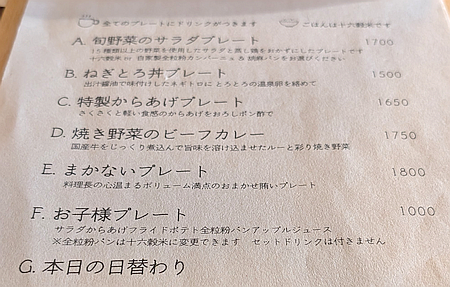 全てのプレートにドリンクがつきます ごはんは十六穀米です
A. 旬野菜のサラダプレート 1700
15種類以上の野菜を使用したサラダと蒸し鶏をおかずにしたプレートです
十六穀米 or 自家製全粒粉カンパーニュ & 胡麻パンをお選びください
B. ねぎとろ丼プレート 1500
出汁醤油で味付けしたネギトロにとろとろの温泉卵を絡めて
C. 特製からあげプレート 1650
さくさくと軽い食感のからあげをおろしポン酢で
D. 焼き野菜のビーフカレー 1750
国産牛をじっくり煮込んで旨味を溶け込ませたルーと彩り焼き野菜
E. まかないプレート 1800
料理長の心温まるボリューム満点のおまかせ賄いプレート
F. お子様プレート 1000
サラダからあげフライドポテト全粒粉パンアップルジュース
※全粒粉パンは十六穀米に変更できます セットドリンクは付きません
G. 本日の日替わり